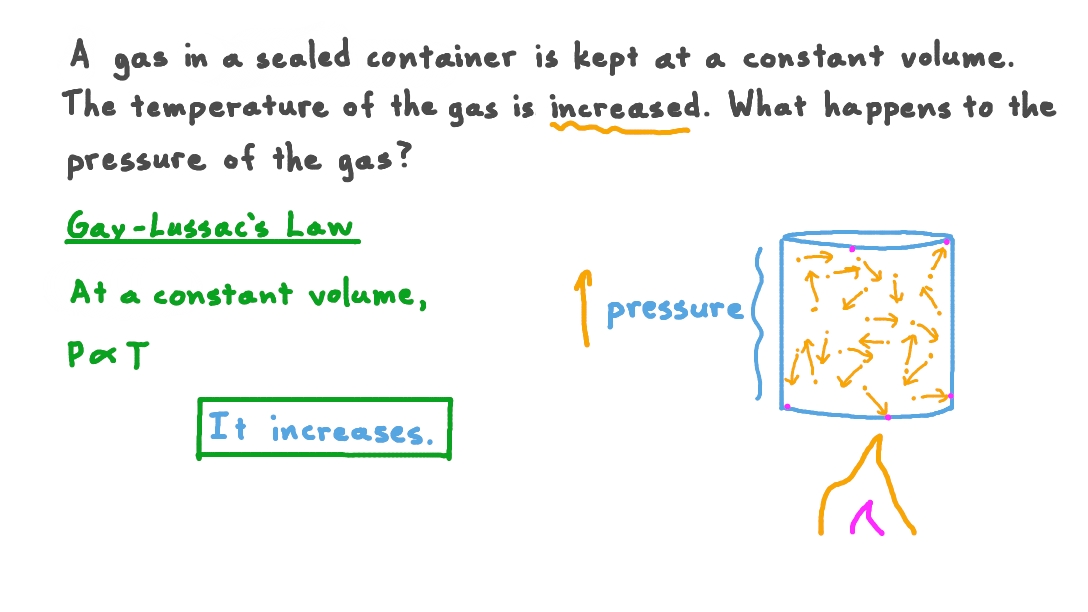 A gas in a sealed container is kept at a constant volume.
The temperature of the gas is increased. What happens to the
pressure of the gas?
Gay-Lussac's Law
At a constant volume,
P∝T
It increases.
pressure